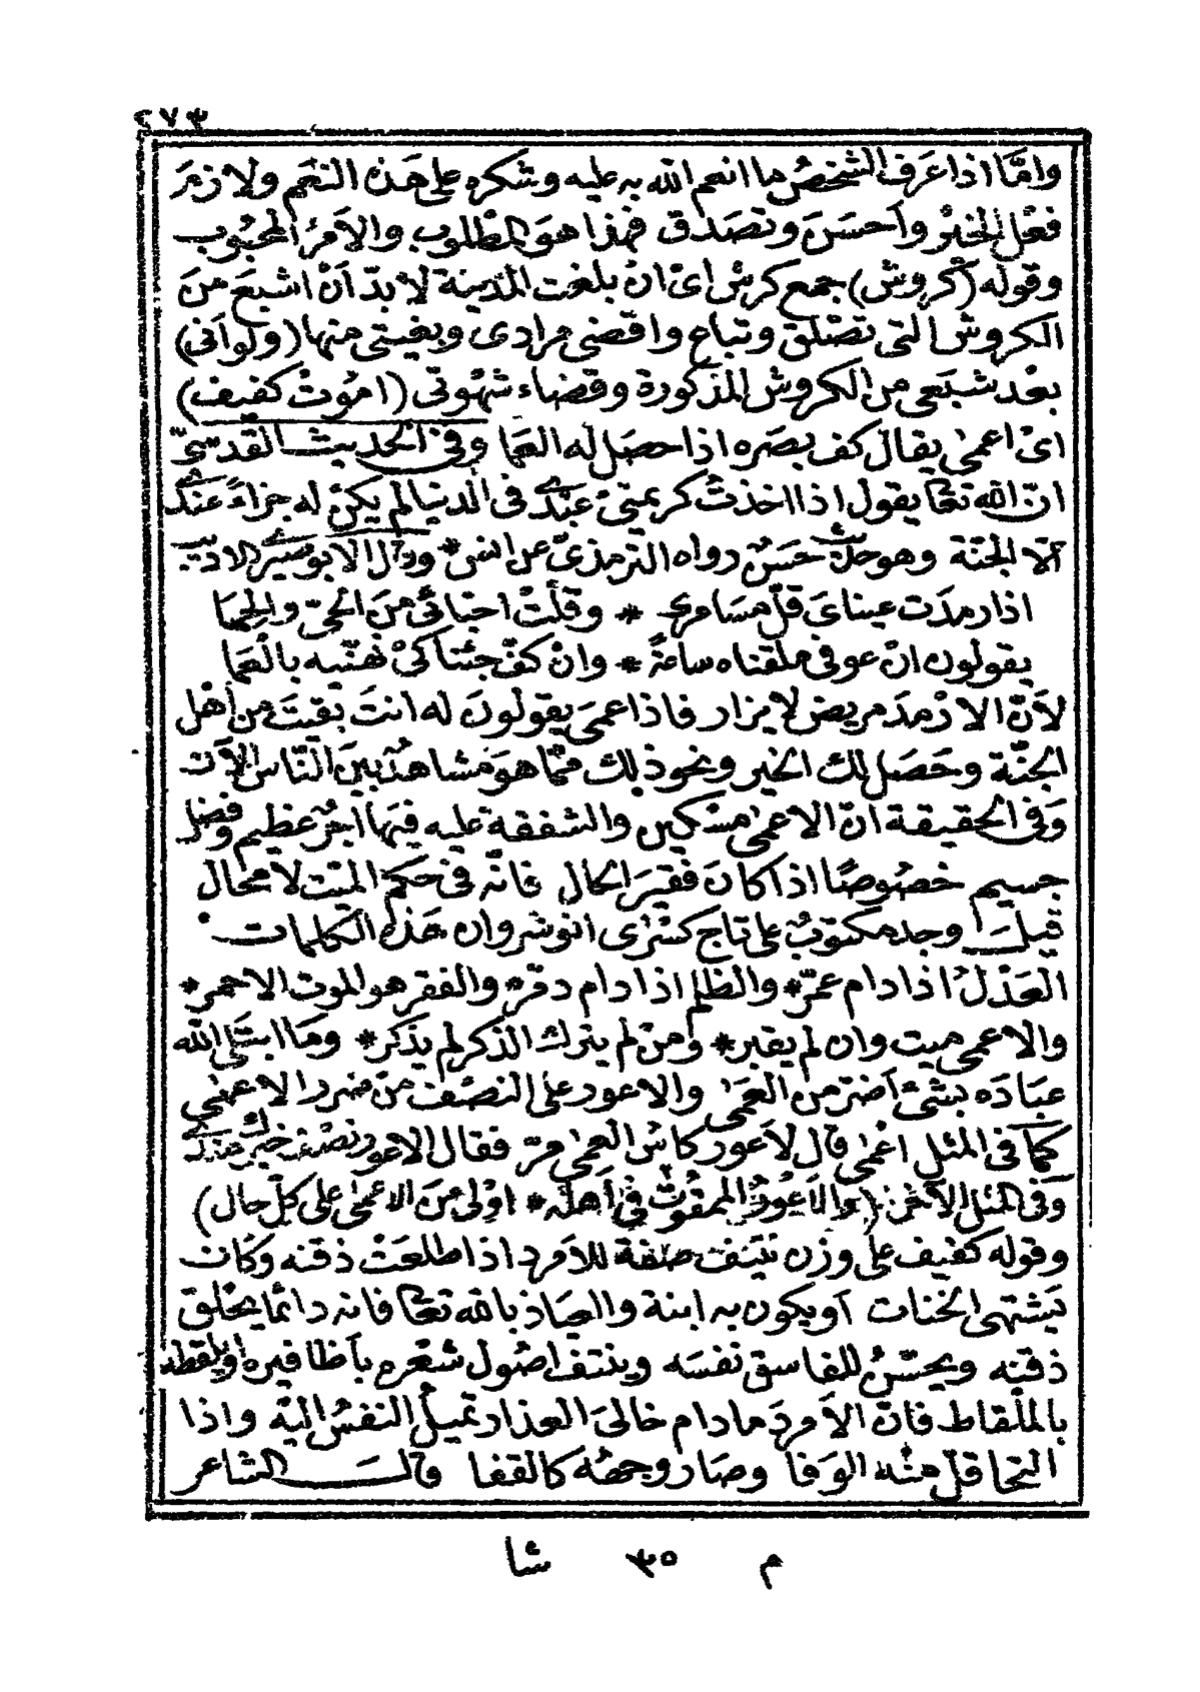 ٢٧٣
وامّا اذا عَرَف الشخصُ ما انعم الله به عليه وشكره على هَذه النعَم ولازمَ
فعْل الخيْر وأحسَنَ وتصَدق فهذا هوَ المطْلوب والأمرُ المحبُوب
وقوله (كروش) جمع كرش اىْ ان بلغت المدينة لا بدّ أنْ اشبَعَ منَ
الكروش التى تصْلق وتباع واقضى مرادى وبغيتى منها (ولو أنى)
بعْد شبَعى من الكروش المذكورة وقضاء شهْوتى (امُوتْ كفيف)
اىْ اعمى يقال كف بصَره اذا حصَل له العما وفى الحديث القدسىّ
انّ الله تعٰا يقول اذا اخذتُ كريمتىْ عبْدى فى الدنيا لم يكنْ له جزاءً عنْدى
الّا الجنّة وهو حديث حَسَنٌ رواه الترمذىّ عن انس * وقال الابوصيرى الاديب
اذا رمدَت عيناىَ قلّ مسَامرى * وقلّتْ احبّائى منَ الحىّ والحِمَا
يقولون انْ عوفى ملقناه ساعةً * وانْ كفّ جئنا كىْ نهنّيه بالْعَمَا
لأنّ الارْمدَ مريض لا يزار فاذا عمىَ يقولونَ له انتَ بقيتَ من أهْل
الجنّة وحَصَل لك الخير ونحو ذلك ممّا هوَ مشاهدٌ بينَ النّاس الآن
وَفى الحقيقة انّ الاعمىٰ مسْكين والشفقة عليه فيهَا اجرٌ عظيم وفضل
جسيم خصُوصًا اذا كانَ فقيرَ الحال فانّه فى حكم الميّت لا محال
قيلَ وجد مكتوبٌ على تاج كسْرى انوشروان هَذه الكلمات
العَدْلُ اذا دام عمّر * والظلم اذا دام دمّر * والفقر هو الموت الاحمر *
والاعمى ميت وان لم يقبر * ومنْ لم يترك الذكر لم يذكر * ومَا ابتلَى الله
عبَادَه بشئ أضرّ من العمَى والاعور على النصْف منْ ضرر الاعمَى
كمَا فى المثل اعْمى قال لأعور كاس العمى مرّ فقال الاعور نصْف خبرك عندى
وَفى المثل الآخر (والأعوَرُ الممقوتُ فى أهله * اوْلى منَ الاعمى على كلّ حال)
وقوله كفيف على وزن نتيف صفة للأمرد اذا طلعَتْ ذقنه وكان
يَشتهى الخنات أو يكون به ابنة والعيَاذ بالله تعٰا فانه دائمًا يحْلق
ذقنه ويحسّنُ للفاسق نفسَه وينتف اصُول شعْره بأظافيره أو يلقطه
بالملْقاط فانّ الأمردَ ما دام خالىَ العذار تميلُ النفسُ اليه واذا
التحا قلّ منْه الوَفا وصَار وجهُه كالقفا قالَ الشاعر
م ٣٥ شا